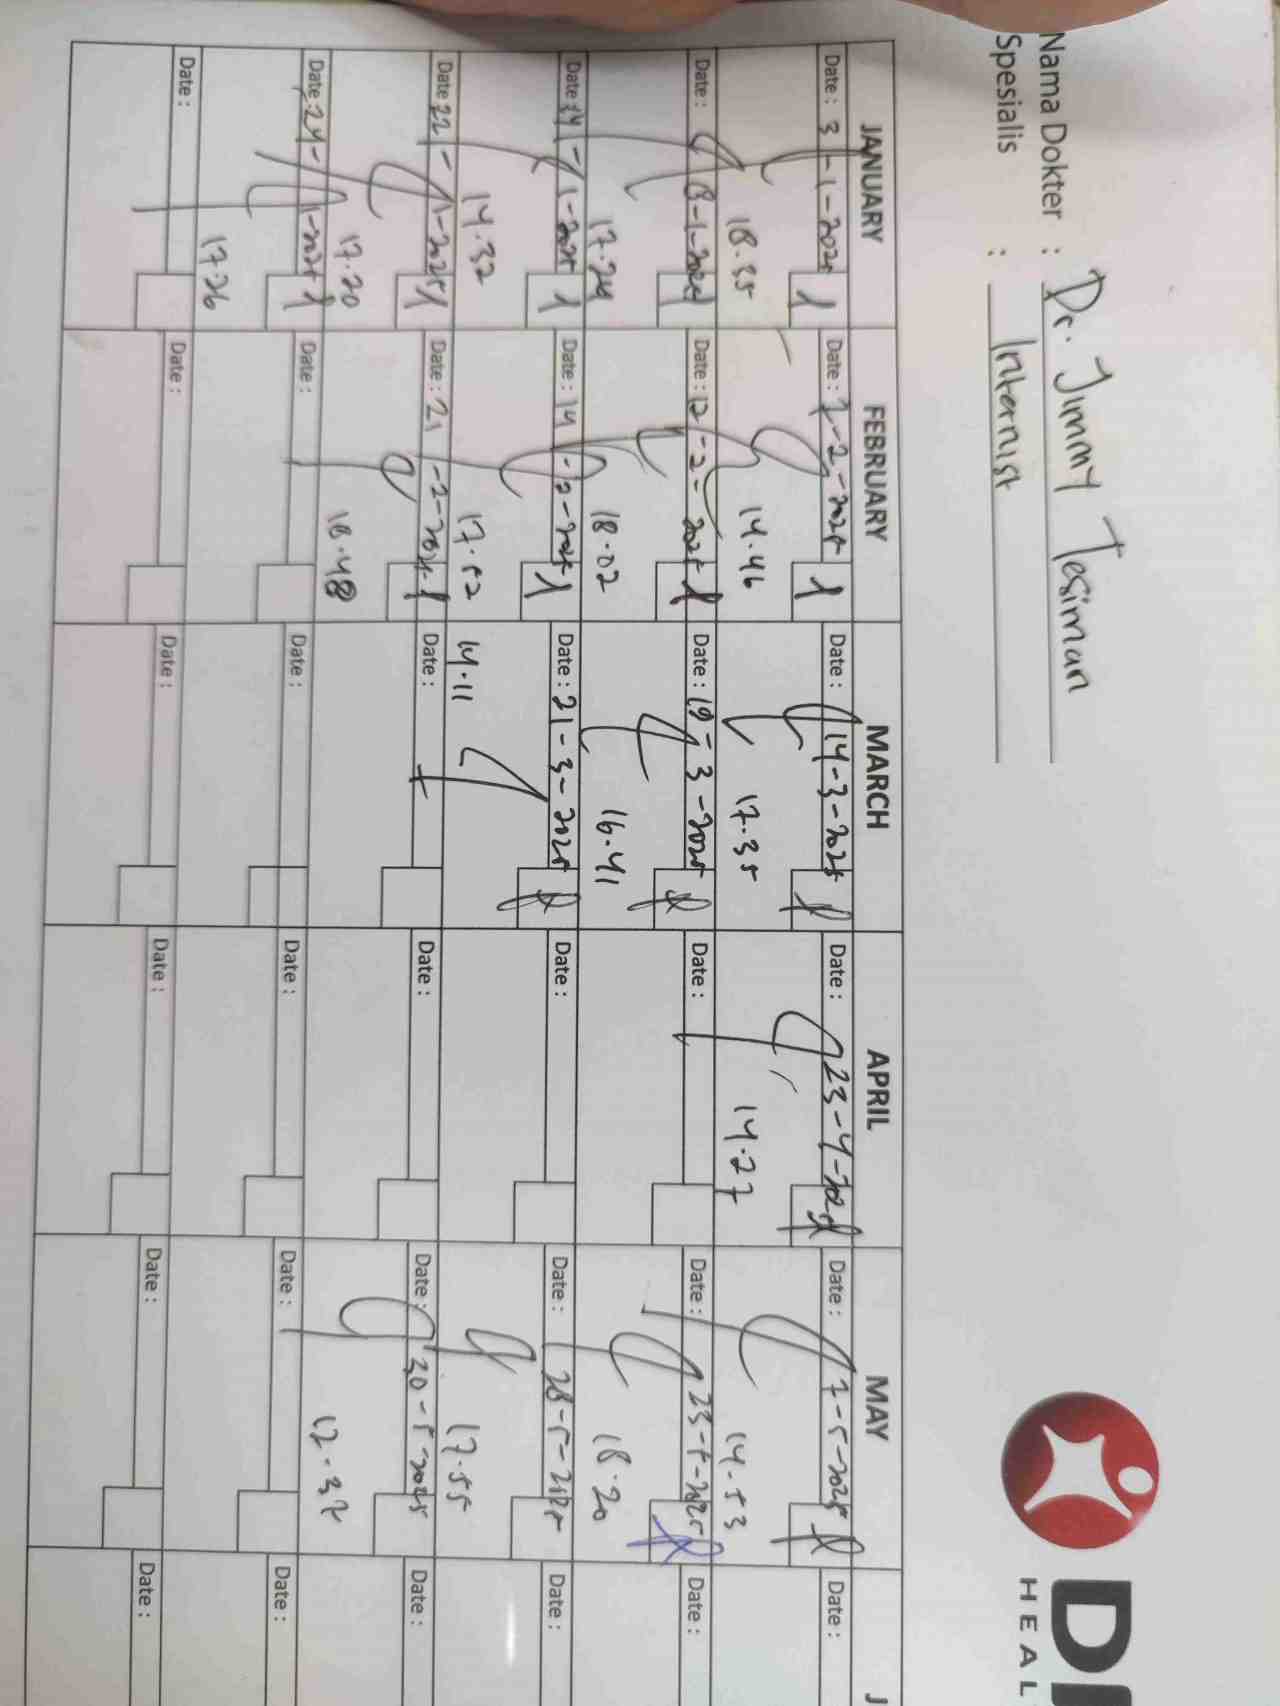 Nama Dokter : Dr. Jimmy Tesiman
Spesialis : Internist
DI
HEAL
JANUARY FEBRUARY MARCH APRIL MAY J
Date : 3-1-2025 Date : 7-2-2025 Date : 14-3-2025 Date : 23-4-2025 Date : 7-5-2025 Date :
18.35 14.46 17.35 14.27 14.53
Date : 8-1-2025 Date : 12-2-2025 Date : 19-3-2025 Date : Date : 23-5-2025 Date :
17.24 18.02 16.41 18.20
Date : -1-2025 Date : 14-2-2025 Date : 21-3-2025 Date : Date : 28-5-2025 Date :
14.32 17.52 14.11 17.55
Date : 22-1-2025 Date : 21-2-2025 Date : Date : Date : 30-5-2025 Date :
17.20 12.37
Date : 24-1-2025 Date : Date : Date : Date : Date :
17.26
Date : Date : Date : Date : Date : Date :